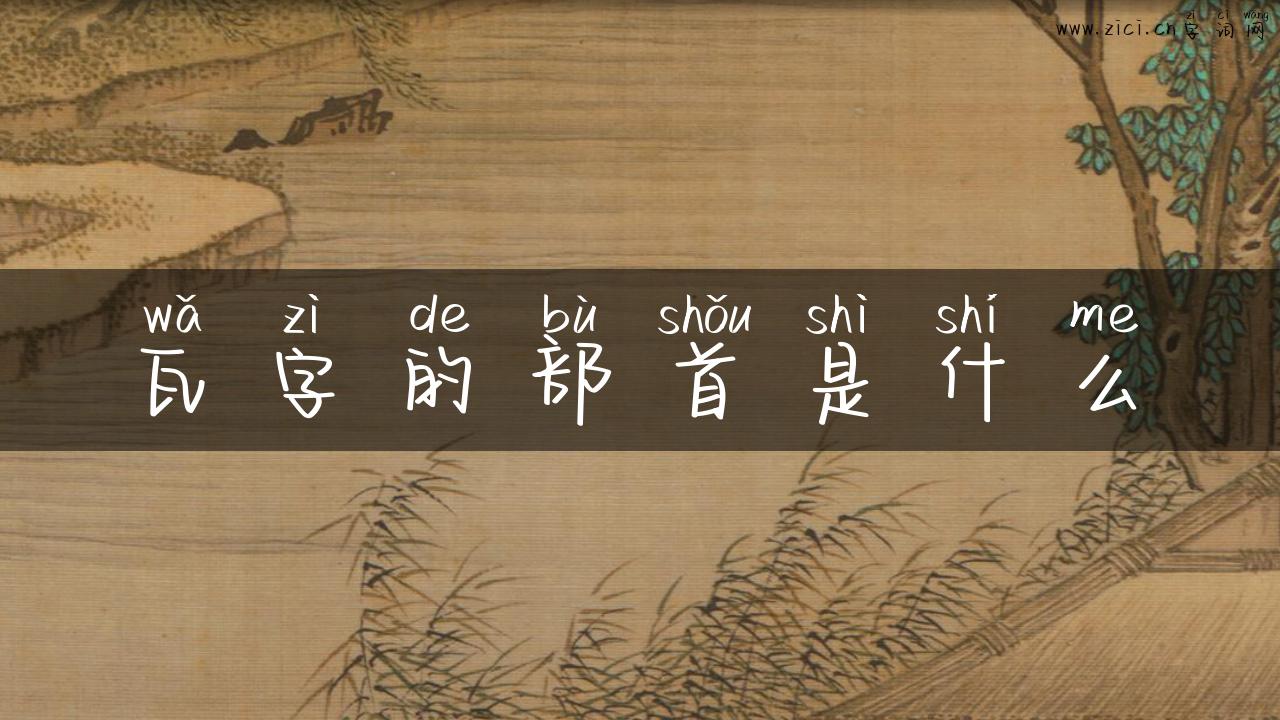 zì cí wǎng
www.zici.cn字词网
wǎ zì de bù shǒu shì shí me
瓦字的部首是什么